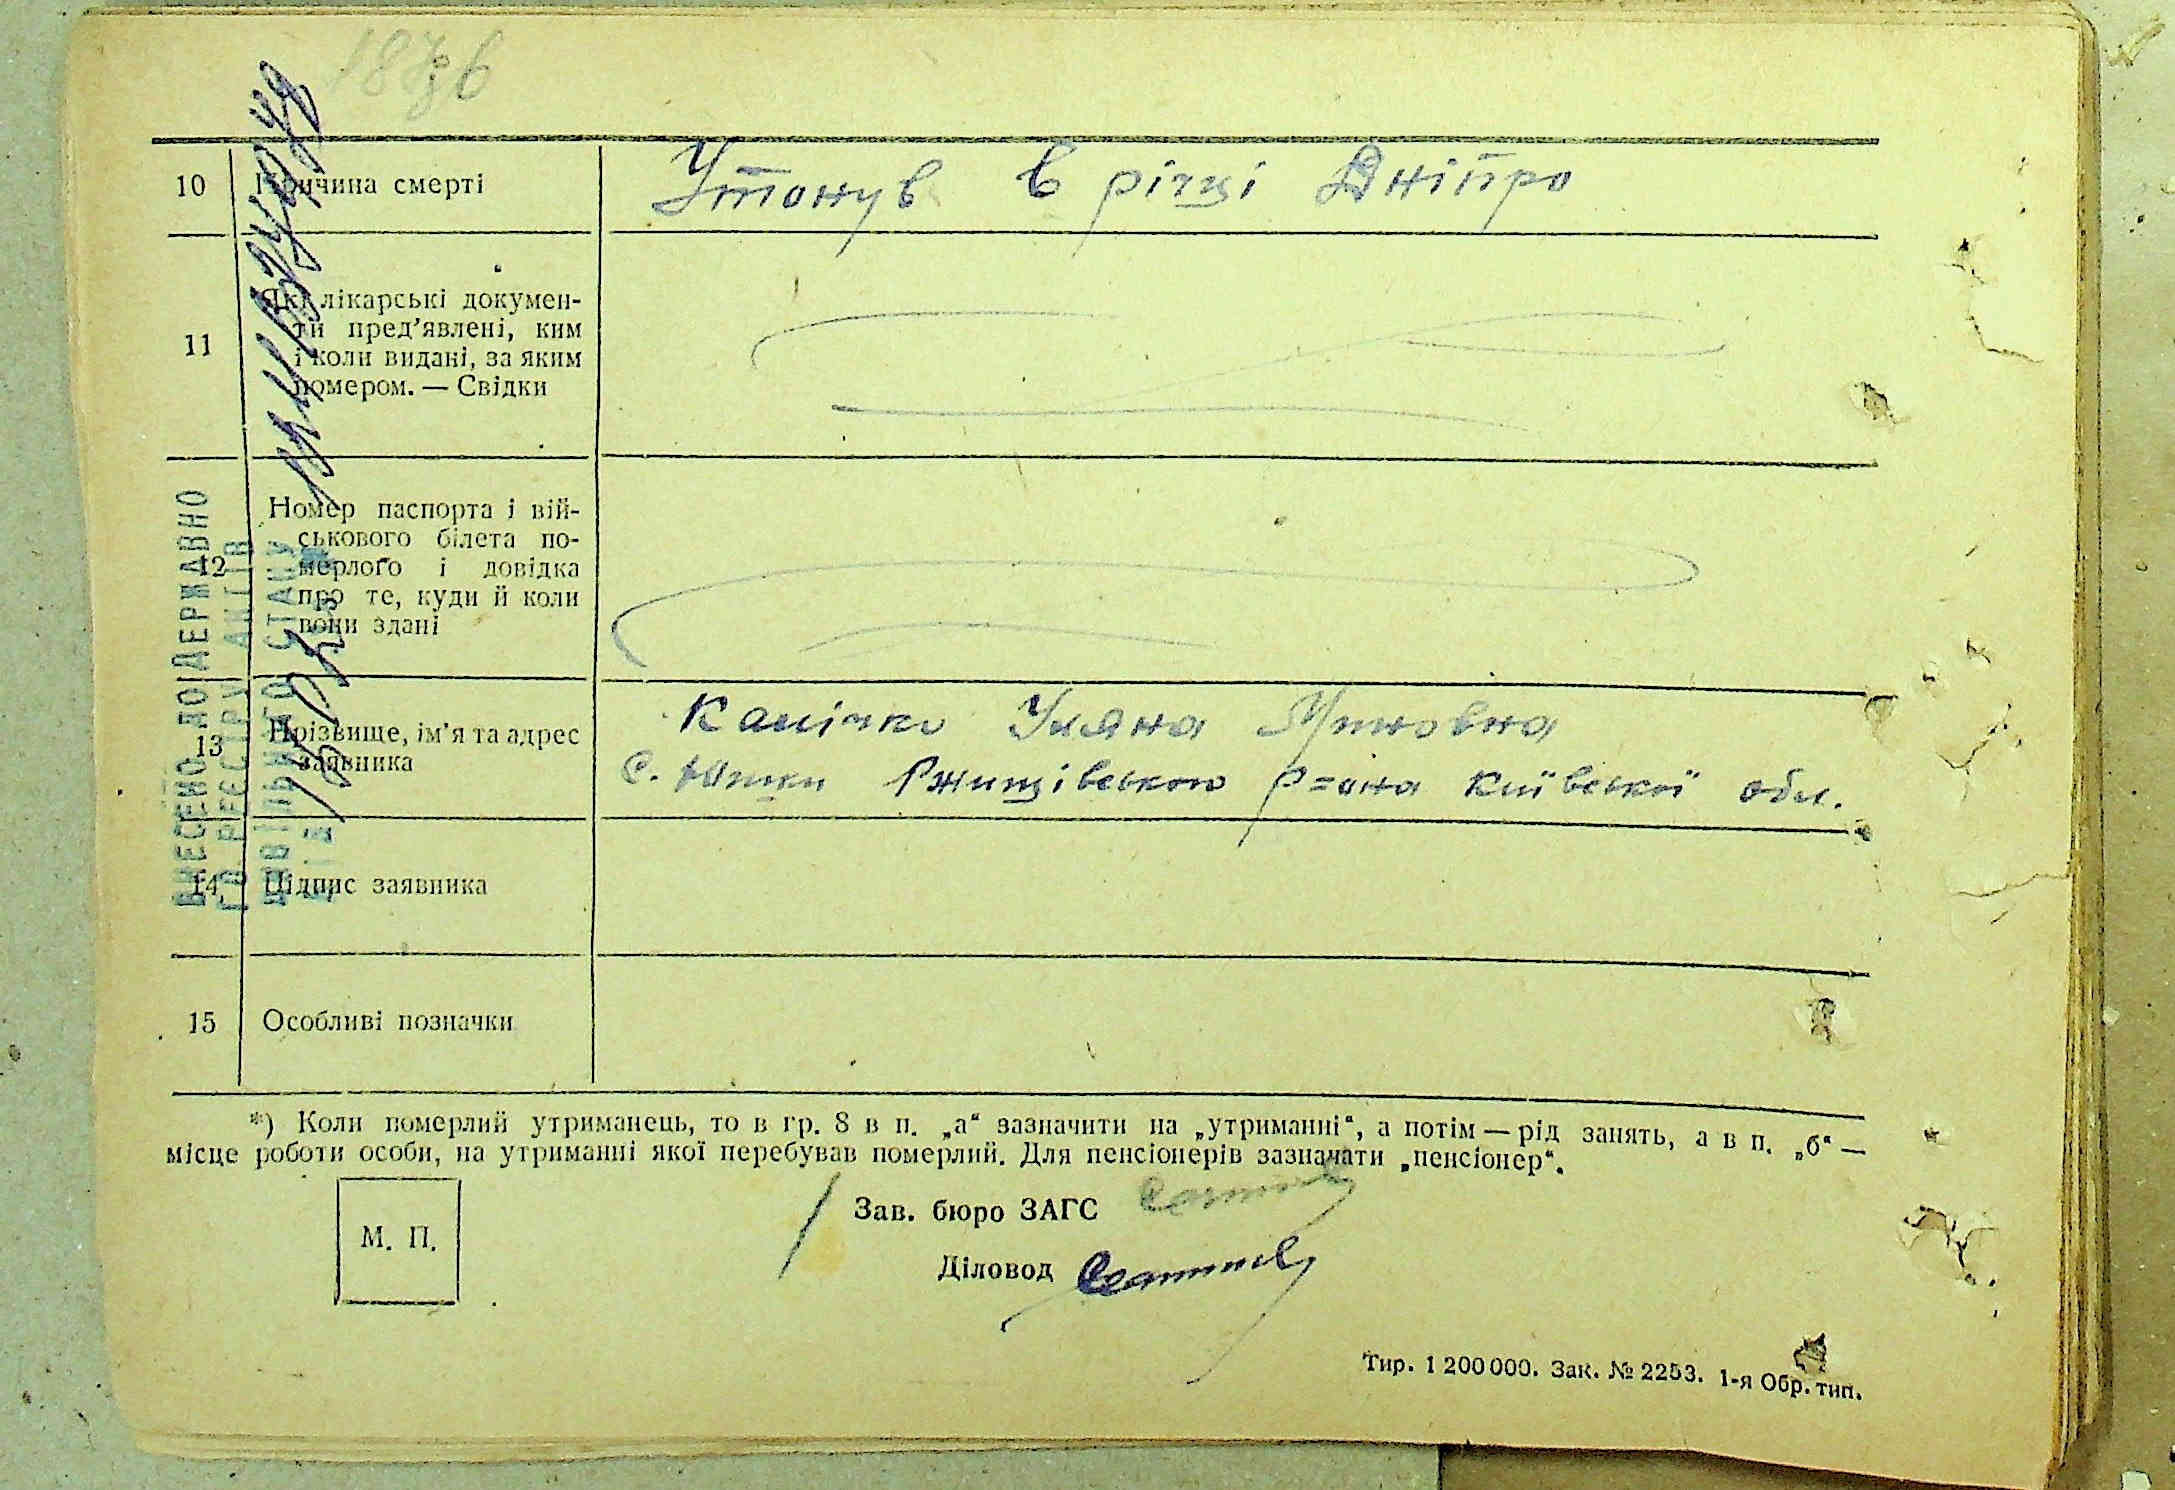 10 Причина смерті Утонув в річці Дніпро
11 Які лікарські докумен-
ти пред'явлені, ким
і коли видані, за яким
номером. — Свідки
12 Номер паспорта і вій-
ськового білета по-
мерлого і довідка
про те, куди й коли
вони здані
13 Прізвище, ім'я та адрес
заявника
Уляна
с. Юшки Ржищівського р=она Київської обл.
14 Підпис заявника
15 Особливі позначки
*) Коли померлий утриманець, то в гр. 8 в п. „а“ зазначити на „утриманні“, а потім — рід занять, а в п. „б“ —
місце роботи особи, на утриманні якої перебував померлий. Для пенсіонерів зазначати „пенсіонер“.
М. П.
Зав. бюро ЗАГС
Діловод
Тир. 1 200 000. Зак. № 2253. 1-я Обр. тип.
ВНЕСЕНО ДО ДЕРЖАВНО
ГО РЕЄСТРУ АКТІВ
ЦИВІЛЬНОГО СТАНУ